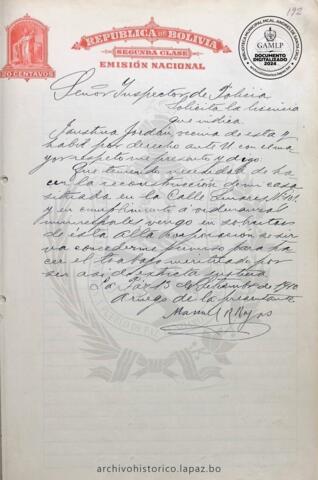 192
REPUBLICA DE BOLIVIA
SEGUNDA CLASE
EMISIÓN NACIONAL
GAMLP
DOCUMENTO
DIGITALIZADO
2024
Señor Inspector de Policia
Solicita la licencia
que indica
Faustina Jordán, vecina de esta y
habil por derecho ante U con el ma
yor respeto me presento y digo:
Que teniendo necesidad de ha
cer la reconstrucción de mi casa
situada en la Calle Linares
y en cumplimiento a ordenanzas
municipales vengo en solicitar
de esta alta corporación se sir
va concederme permiso para ha
cer el trabajo meritado por
ser asi de extricta justicia
La Paz 13 Septiembre de 1910
A ruego de la presentante
Manuel R
archivohistorico.lapaz.bo